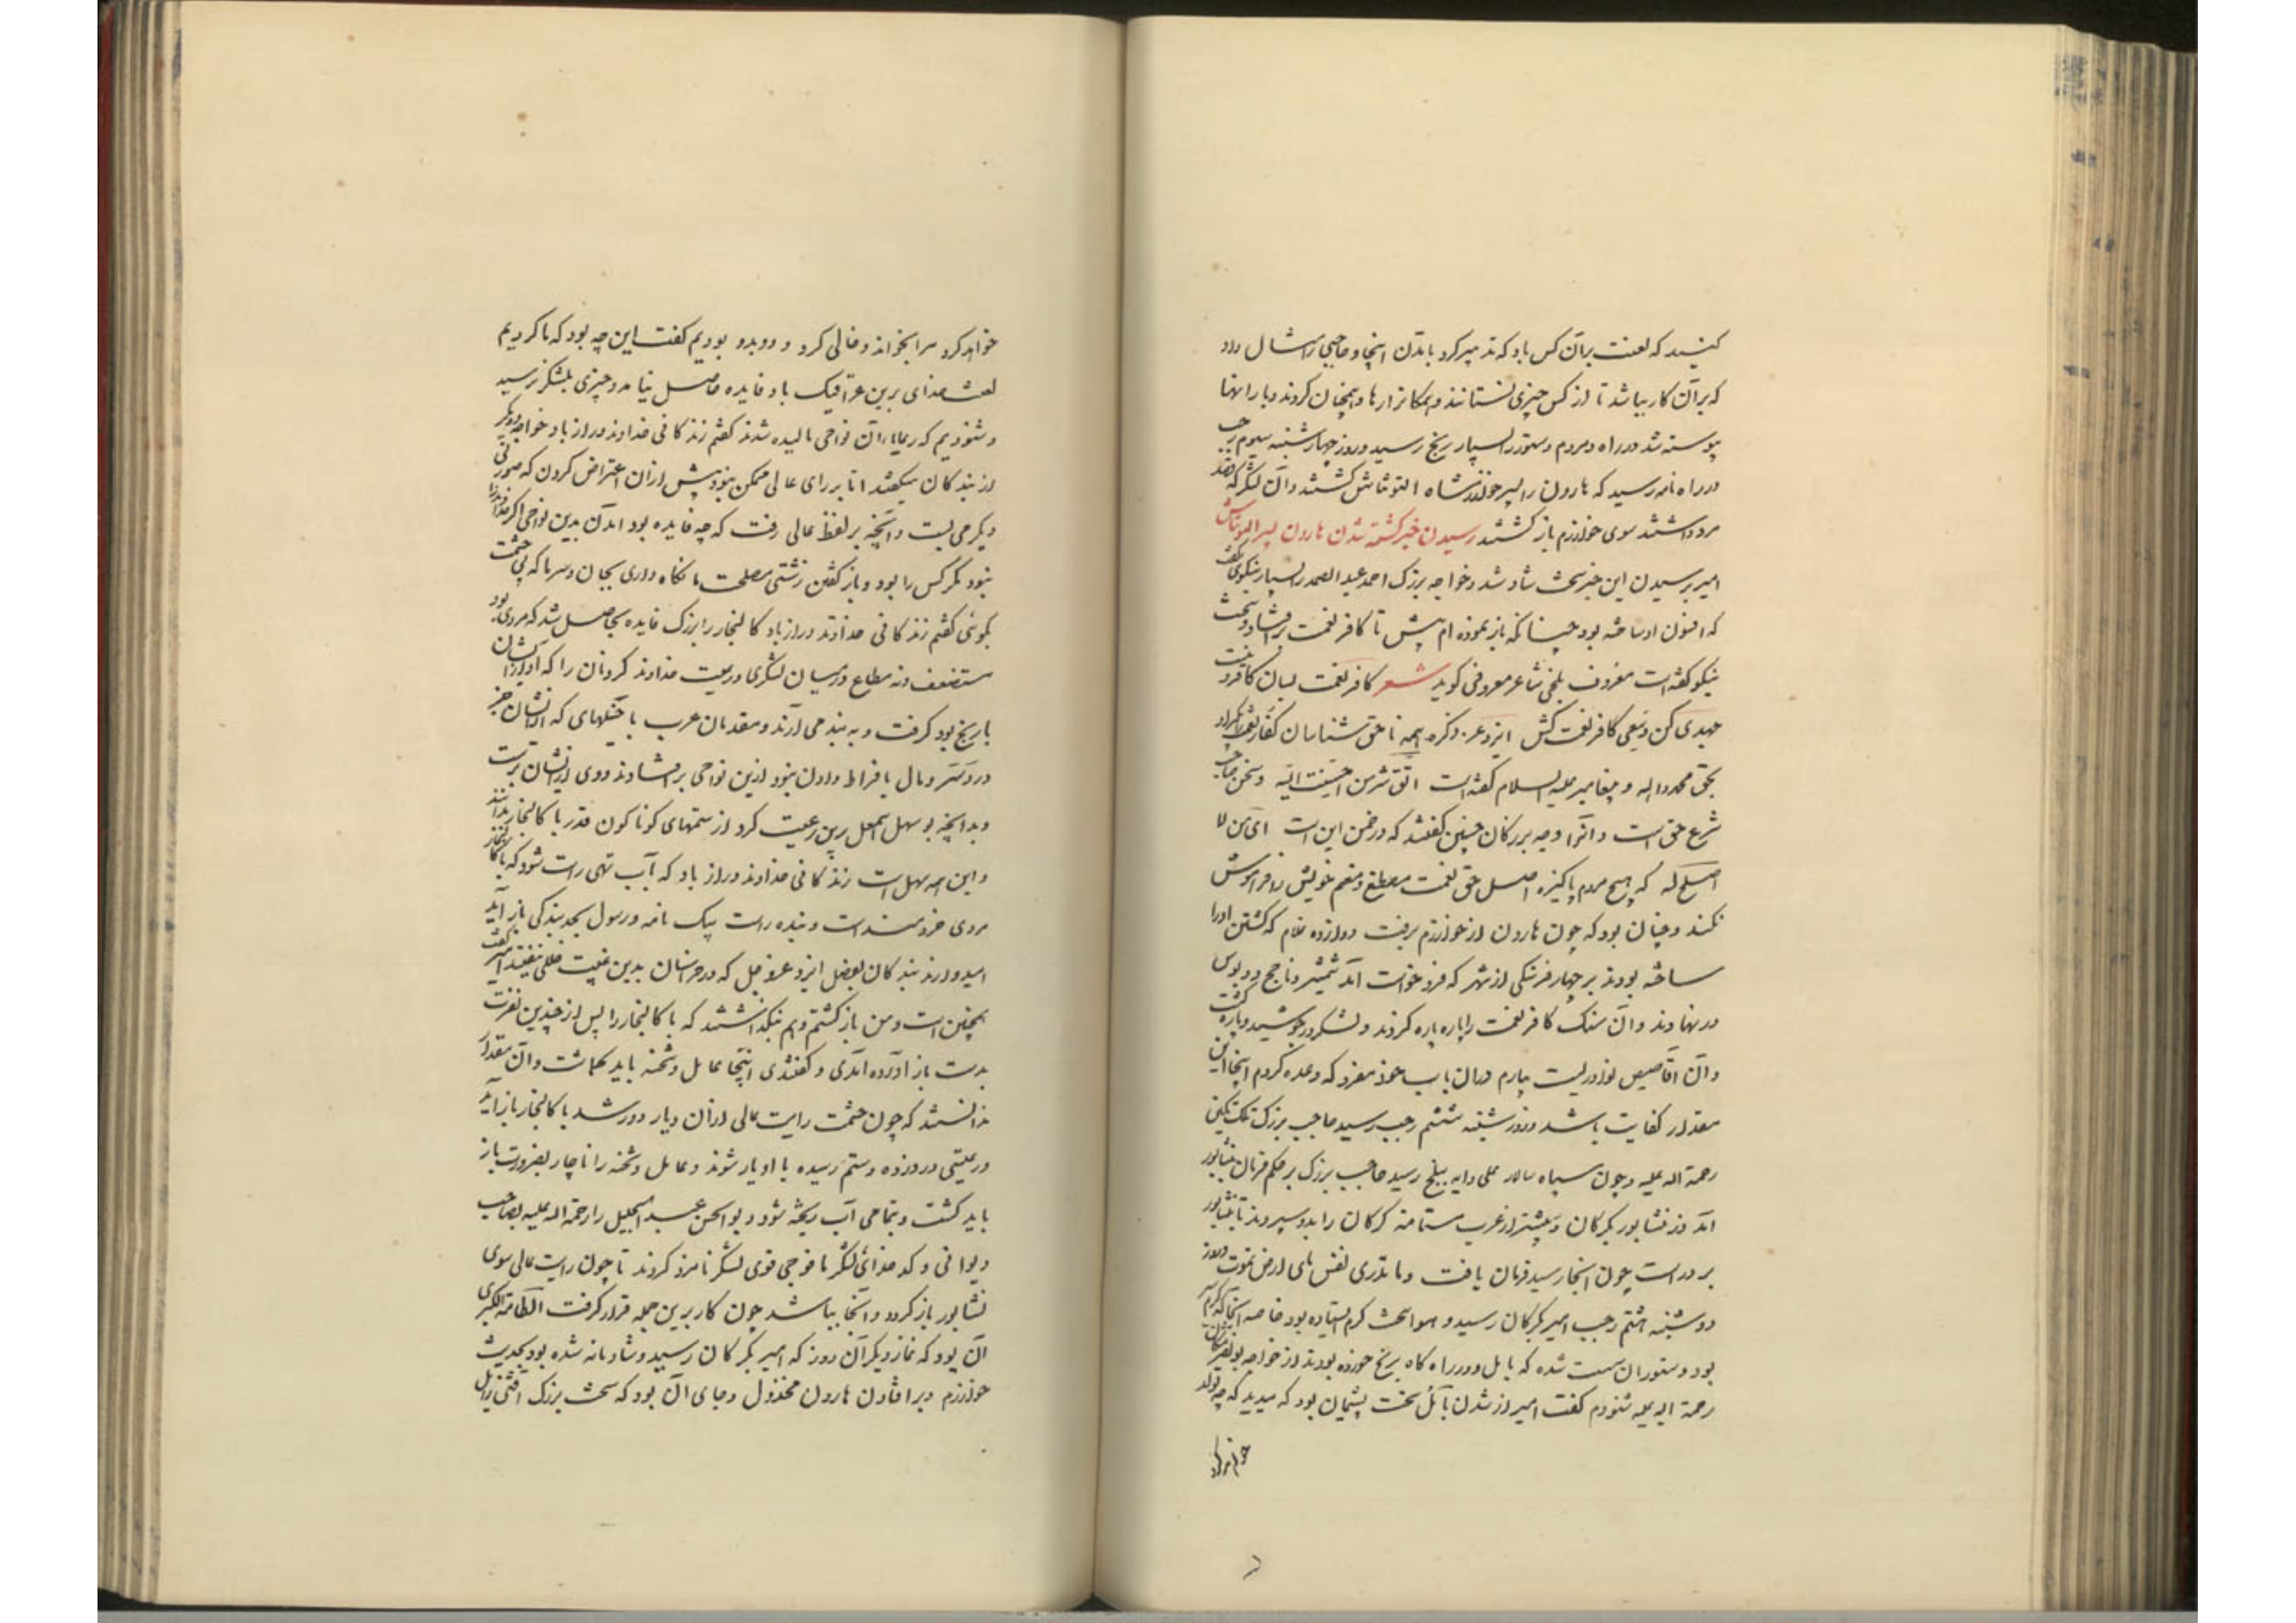 کنید که لعنت بر آن کس باد که تدبیر کرد بآمدن اینجا و حاجبی را مثال داد
که بر آن کار بباشد تا از کس چیزی نستانند و همچنان کردند و بار انها
پیوسته شد در راه و مردم و ستور را بسیار رنج رسید و روز چهارشنبه سیوم رجب
در راه نامه رسید که هارون را پسر خوارزمشاه التونتاش کشتند و آن لشکر که قصد
مرو داشتند سوی خوارزم باز کشتند رسیدن خبر کشته شدن هارون پسر التونتاش
امیر برسیدن این خبر سخت شاد شد و خواجه بزرک احمد عبد الصمد را بسیار نیکوئی گفت
که افسون او ساخته بود چنانکه باز نموده ام پیش تا کافر نعمت برافتاد و سخت
نیکو گفته است معروف بلخی شاعر معروفی کوید شعر کافر نعمت بسان کافر دینست
جهدی کن و سعی کافر نعمت کش ایزد عز ذکره همه ناحق شناسان کفار نعمت را بگیراد
بحق محمد و آله و پیغامبر علیه السلام گفته است اتق شر من احسنت الیه و سخن صاحب
شرع حق است و آنرا وجه بزرکان چنین گفتند که در ضمن این است ای من لا
اصل له که هیچ مردم پاکیزه اصل حق نعمت مصطنع و منعم خویش را فراموش
نکند و چنان بود که چون هارون از خوارزم برفت دوازده غلام که کشتن او را
ساخته بودند بر چهار فرسنکی از شهر که فرود خواست آمد شمشیر و ناچخ و دبوس
در نهادند و آن سک کافر نعمت را پاره پاره کردند و لشکر در جوشید و باز گشت
و آن اقاصیص نوادر است بیارم در آن باب خود مفرد که وعده کردم اینجا این
مقدار کفایت باشد و روز شنبه ششم رجب رسید حاجب بزرک بلکاتکین
رحمة الله علیه و چون سپاه سالار علی دایه ببلخ رسید حاجب بزرک بر حکم فرمان نشابور
آمد و از نشابور بکرکان و پیشتر از عرب مستامنه کرکان را بدو سپردند تا نشابور
برد راست چون آنجا رسید فرمان یافت و ما تدری نفس بای ارض تموت و روز
دوشنبه هشتم رجب امیر بکرکان رسید و هوا سخت کرم ایستاده بود خاصه آنجا که کرمسیر
بود و ستوران سست شده که بآمل و در راه کاه برنج خورده بودند از خواجه بونصر مشکان
رحمة الله علیه شنودم گفت امیر از شدن بآمل سخت پشیمان بود که میدید که چه تولد
خواهد کرد
خواهد کرد مرا بخواند و خالی کرد و دوبدو بودیم گفت این چه بود که ما کردیم
لعنت خدای برین عراقیک باد فایده حاصل نیامد و چیزی بلشکر نرسید
و شنودیم که رعایای آن نواحی مالیده شدند گفتم زندکانی خداوند دراز باد خواجه و دیکر
از بندکان میگفتند اما بر رای عالی ممکن نبود پیش ازان اعتراض کردن که صورتی
دیکر می بست و آنچه بر لفظ عالی رفت که چه فایده بود آمدن بدین نواحی اکر خداوند را
نبود دیکر کس را بود و باز گفتن زشتی مصلحت ما نکاه داری بجان و سر ما که بی حشمت
بکوئی گفتم زندکانی خداوند دراز باد کالنجار را بزرک فایده بحاصل شد که مردی بود
مستضعف و نه مطاع در میان لشکری و رعیت خداوند کردنان را که او از ایشان
با رنج بود کرفت و به بند می آرند و مقدمان عرب با خیلهای که از ایشان جز
درد سر و مال بافراط دادن نبود ازین نواحی برافتادند و وی از ایشان برست
و بدانچه بو سهل اسمعیل برین رعیت کرد از ستمهای کوناکون قدر با کالنجار بدانند
و این همه سهل است زندکانی خداوند دراز باد که آب تهی راست شود که با کالنجار
مردی خردمند است و بنده راست بیک نامه و رسول بحد بندکی باز آید
امید دارند بندکان بفضل ایزد عز و جل که در خراسان بدین غیبت خللی نیفتد امیر گفت
همچنین است و من باز گشتم و هم نبگذاشتند که با کالنجار را پس از چندین نفرت
بدست باز آورده آمدی و گفتندی اینجا عامل و شحنه باید گماشت و آن مقدار
ندانستند که چون حشمت رایت عالی ازان دیار دور شد با کالنجار باز آید
و رعیتی درد زده و ستم رسیده با او یار شوند و عامل و شحنه را ناچار بضرورت باز
باید گشت و بتمامی آب ریخته شود و بو الحسن عبد الجلیل را رحمة الله علیه بصاحب
دیوانی و کدخدائی لشکر با فوجی قوی لشکر نامزد کردند تا چون رایت عالی سوی
نشابور باز کردد و آنجا بباشد چون کار برین جمله قرار کرفت الطامة الکبری
آن بود که نماز دیکر آن روز که امیر بکرکان رسید و شادمانه شده بود بحدیث
خوارزم و برافتادن هارون مخذول و جای آن بود که سخت بزرک آفتی زایل